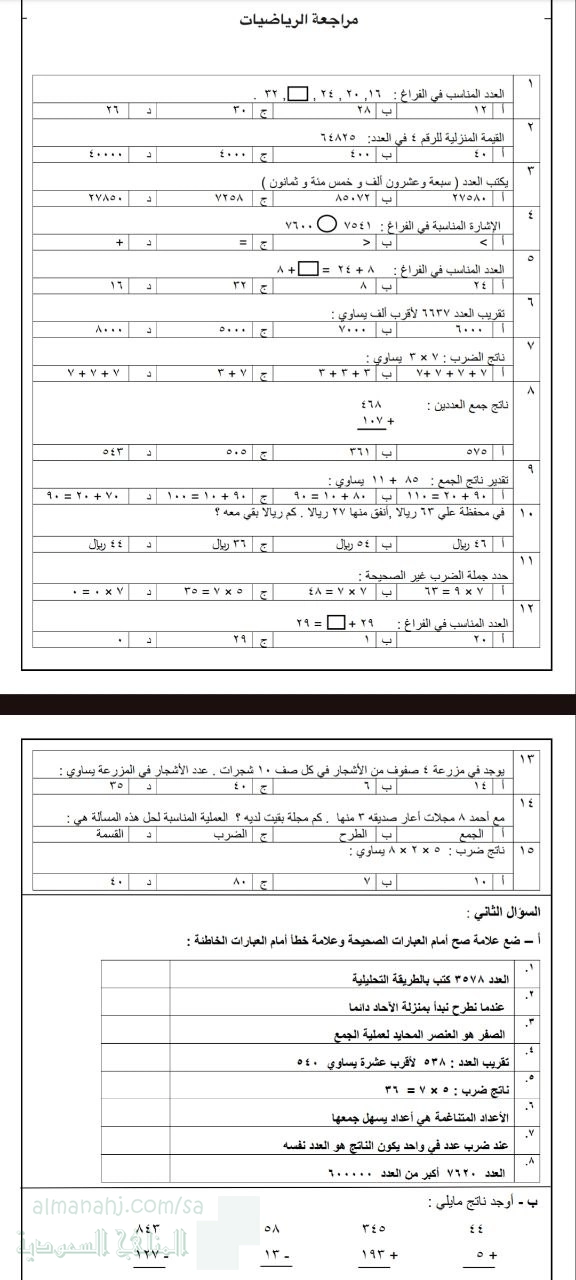 مراجعة الرياضيات
١ العدد المناسب في الفراغ : ١٦, ٢٠ , ٢٤ , □, ٣٢ .
أ ١٢ ب ٢٨ ج ٣٠ د ٢٦
٢ القيمة المنزلية للرقم ٤ في العدد: ٦٤٨٢٥
أ ٤٠ ب ٤٠٠ ج ٤٠٠٠ د ٤٠٠٠٠
٣ يكتب العدد ( سبعة وعشرون ألف و خمس مئة و ثمانون )
أ ٢٧٥٨٠ ب ٨٥٠٧٢ ج ٧٢٥٨ د ٢٧٨٥٠
٤ الإشارة المناسبة في الفراغ : ٧٥٤١ ○ ٧٦٠٠
أ > ب < ج = د +
٥ العدد المناسب في الفراغ : ٨ + ٢٤ = □ + ٨
أ ٢٤ ب ٨ ج ٣٢ د ١٦
٦ تقريب العدد ٦٦٣٧ لأقرب ألف يساوي :
أ ٦٠٠٠ ب ٧٠٠٠ ج ٥٠٠٠ د ٨٠٠٠
٧ ناتج الضرب : ٧ × ٣ يساوي :
أ ٧ + ٧ + ٧ +٧ ب ٣ + ٣ + ٣ ج ٧ + ٣ د ٧ + ٧ + ٧
٨ ناتج جمع العددين : ٤٦٨
١٠٧ +
أ ٥٧٥ ب ٣٦١ ج ٥٠٥ د ٥٤٣
٩ تقدير ناتج الجمع : ٨٥ + ١١ يساوي :
أ ٩٠ + ٢٠ = ١١٠ ب ٨٠ + ١٠ = ٩٠ ج ٩٠ + ١٠ = ١٠٠ د ٧٠ + ٢٠ = ٩٠
١٠ في محفظة علي ٦٣ ريالا ,أنفق منها ٢٧ ريالا . كم ريالا بقي معه ؟
أ ٤٦ ريال ب ٥٤ ريال ج ٣٦ ريال د ٤٤ ريال
١١ حدد جملة الضرب غير الصحيحة :
أ ٧ × ٩ = ٦٣ ب ٧ × ٧ = ٤٨ ج ٥ × ٧ = ٣٥ د ٧ × ٠ = ٠
١٢ العدد المناسب في الفراغ : ٢٩ + □ = ٢٩
أ ٢٠ ب ١ ج ٢٩ د ٠
١٣ يوجد في مزرعة ٤ صفوف من الأشجار في كل صف ١٠ شجرات . عدد الأشجار في المزرعة يساوي :
أ ١٤ ب ٦ ج ٤٠ د ٣٥
١٤ مع أحمد ٨ مجلات أعار صديقه ٣ منها . كم مجلة بقيت لديه ؟ العملية المناسبة لحل هذه المسألة هي :
أ الجمع ب الطرح ج الضرب د القسمة
١٥ ناتج ضرب : ٥ × ٢ × ٨ يساوي :
أ ١٠ ب ٧ ج ٨٠ د ٤٠
السؤال الثاني :
أ – ضع علامة صح أمام العبارات الصحيحة وعلامة خطأ أمام العبارات الخاطئة :
١. العدد ٣٥٧٨ كتب بالطريقة التحليلية
٢. عندما نطرح نبدأ بمنزلة الأحاد دائما
٣. الصفر هو العنصر المحايد لعملية الجمع
٤. تقريب العدد : ٥٣٨ لأقرب عشرة يساوي ٥٤٠
٥. ناتج ضرب : ٥ × ٧ = ٣٦
٦. الأعداد المتناغمة هي أعداد يسهل جمعها
٧. عند ضرب عدد في واحد يكون الناتج هو العدد نفسه
٨. العدد ٧٦٢٠ أكبر من العدد ٦٠٠٠٠٠
ب - أوجد ناتج مايلي :
٤٤ ٣٤٥ ٥٨ ٨٤٣
٥ + ١٩٣ + ١٣ - ١٢٧ -
almanahj.com/sa
المناهج السعودية